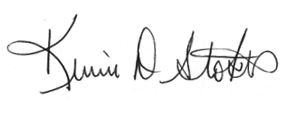 Kevin D Stokes